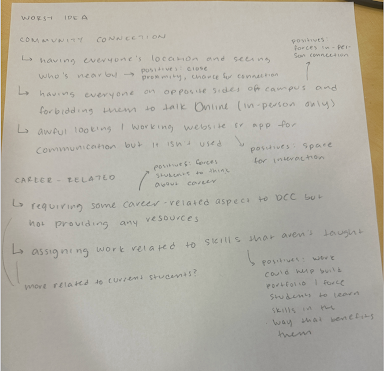 WORST IDEA
COMMUNITY CONNECTION
↳ having everyone's location and seeing
who's nearby → positives: close
proximity, chance for connection
positives:
forces in-per-
son connection
↳ having everyone on opposite sides of campus and
forbidding them to talk online (in-person only)
↳ awful looking / working website or app for
communication but it isn't used
positives: space
for interaction
CAREER-RELATED
positives: forces
students to think
about career
↳ requiring some career-related aspect to DCC but
not providing any resources
↳ assigning work related to skills that aren't taught
more related to current students?
positives: work
could help build
portfolio / force
students to learn
skills in the
way that benefits
them